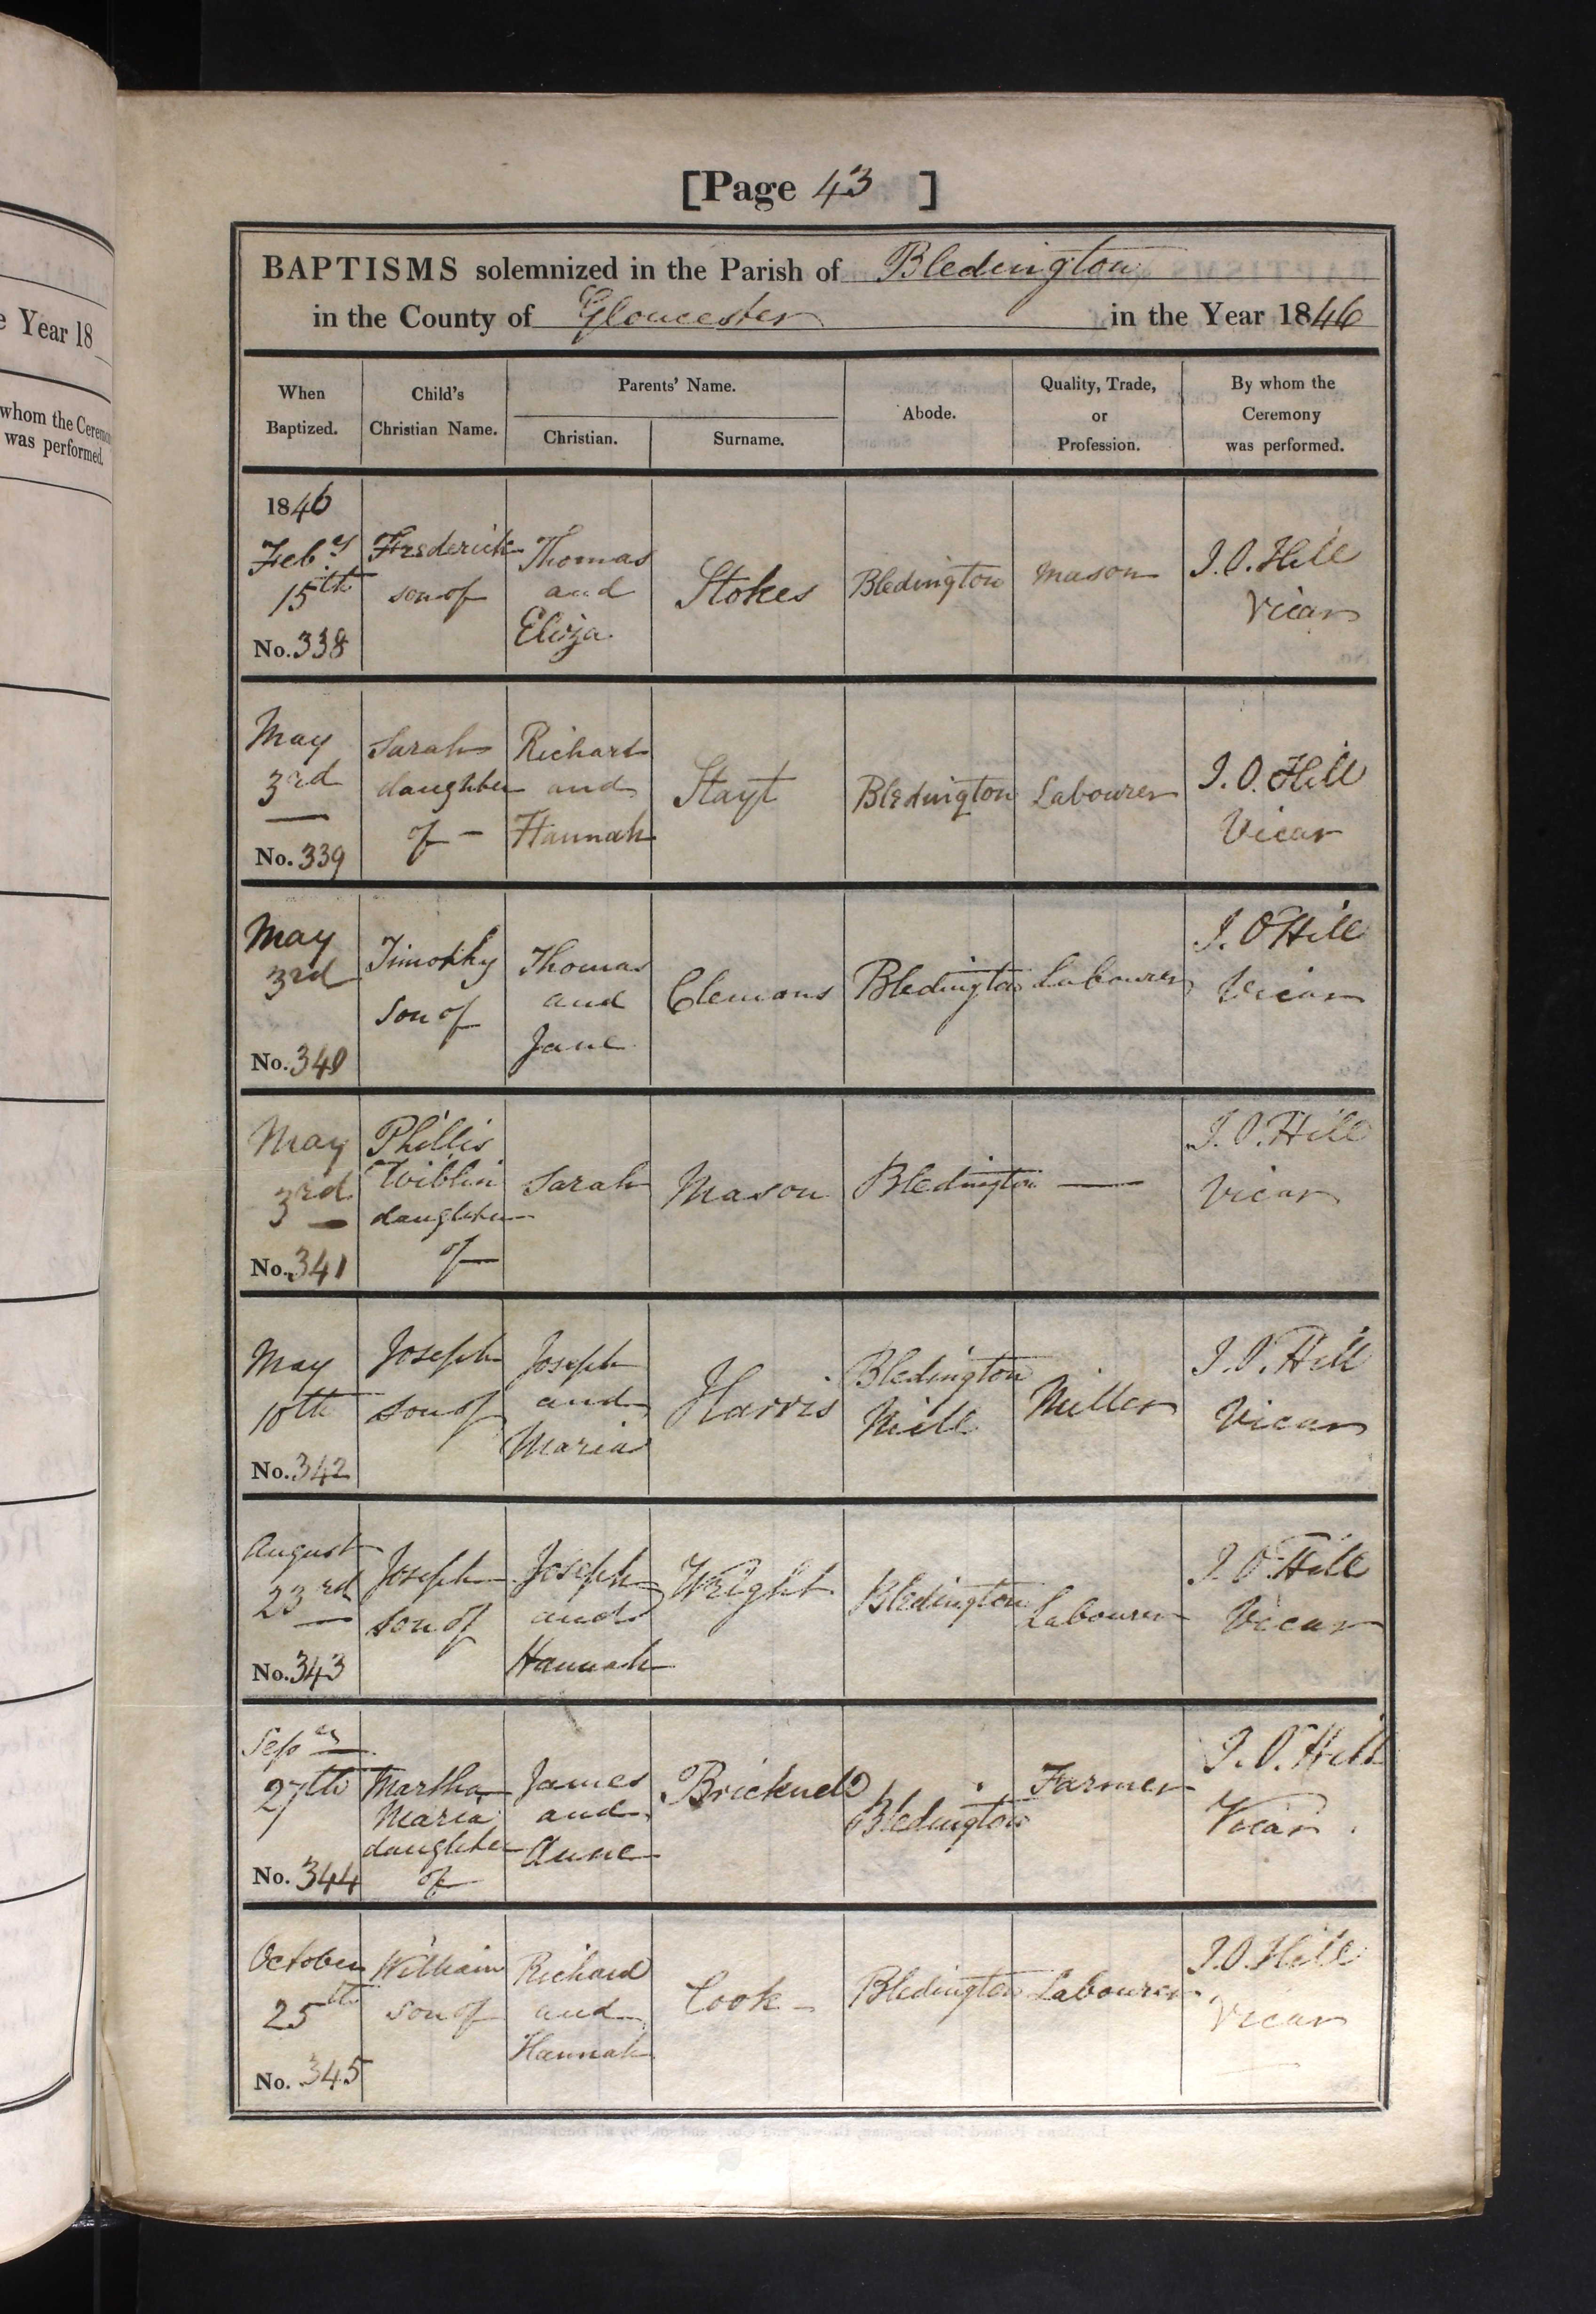 e Year 18
whom the Ceremo
was performed.
[Page 43 ]
BAPTISMS solemnized in the Parish of Bledington
in the County of Gloucester in the Year 1846
When Baptized. Child's Christian Name. Parents' Name. Abode. Quality, Trade, or Profession. By whom the Ceremony was performed.
Christian. Surname.
1846
Feby 15th No. 338 Frederick son of Thomas and Eliza Stokes Bledington Mason J. O. Hill Vicar
May 3rd No. 339 Sarah daughter of Richard and Hannah Stayt Bledington Labourer J. O. Hill Vicar
May 3rd No. 340 Timothy son of Thomas and Jane Clemons Bledington Labourer J. O. Hill Vicar
May 3rd No. 341 Phillis Wiblin daughter of Sarah Mason Bledington — J. O. Hill Vicar
May 10th No. 342 Joseph son of Joseph and Maria Harris Bledington Mill Miller J. O. Hill Vicar
August 23rd No. 343 Joseph son of Joseph and Hannah Wright Bledington Labourer J. O. Hill Vicar
Sepr 27th No. 344 Martha Maria daughter of James and Anne Bricknell Bledington Farmer J. O. Hill Vicar
October 25th No. 345 William son of Richard and Hannah Cook Bledington Labourer J. O. Hill Vicar